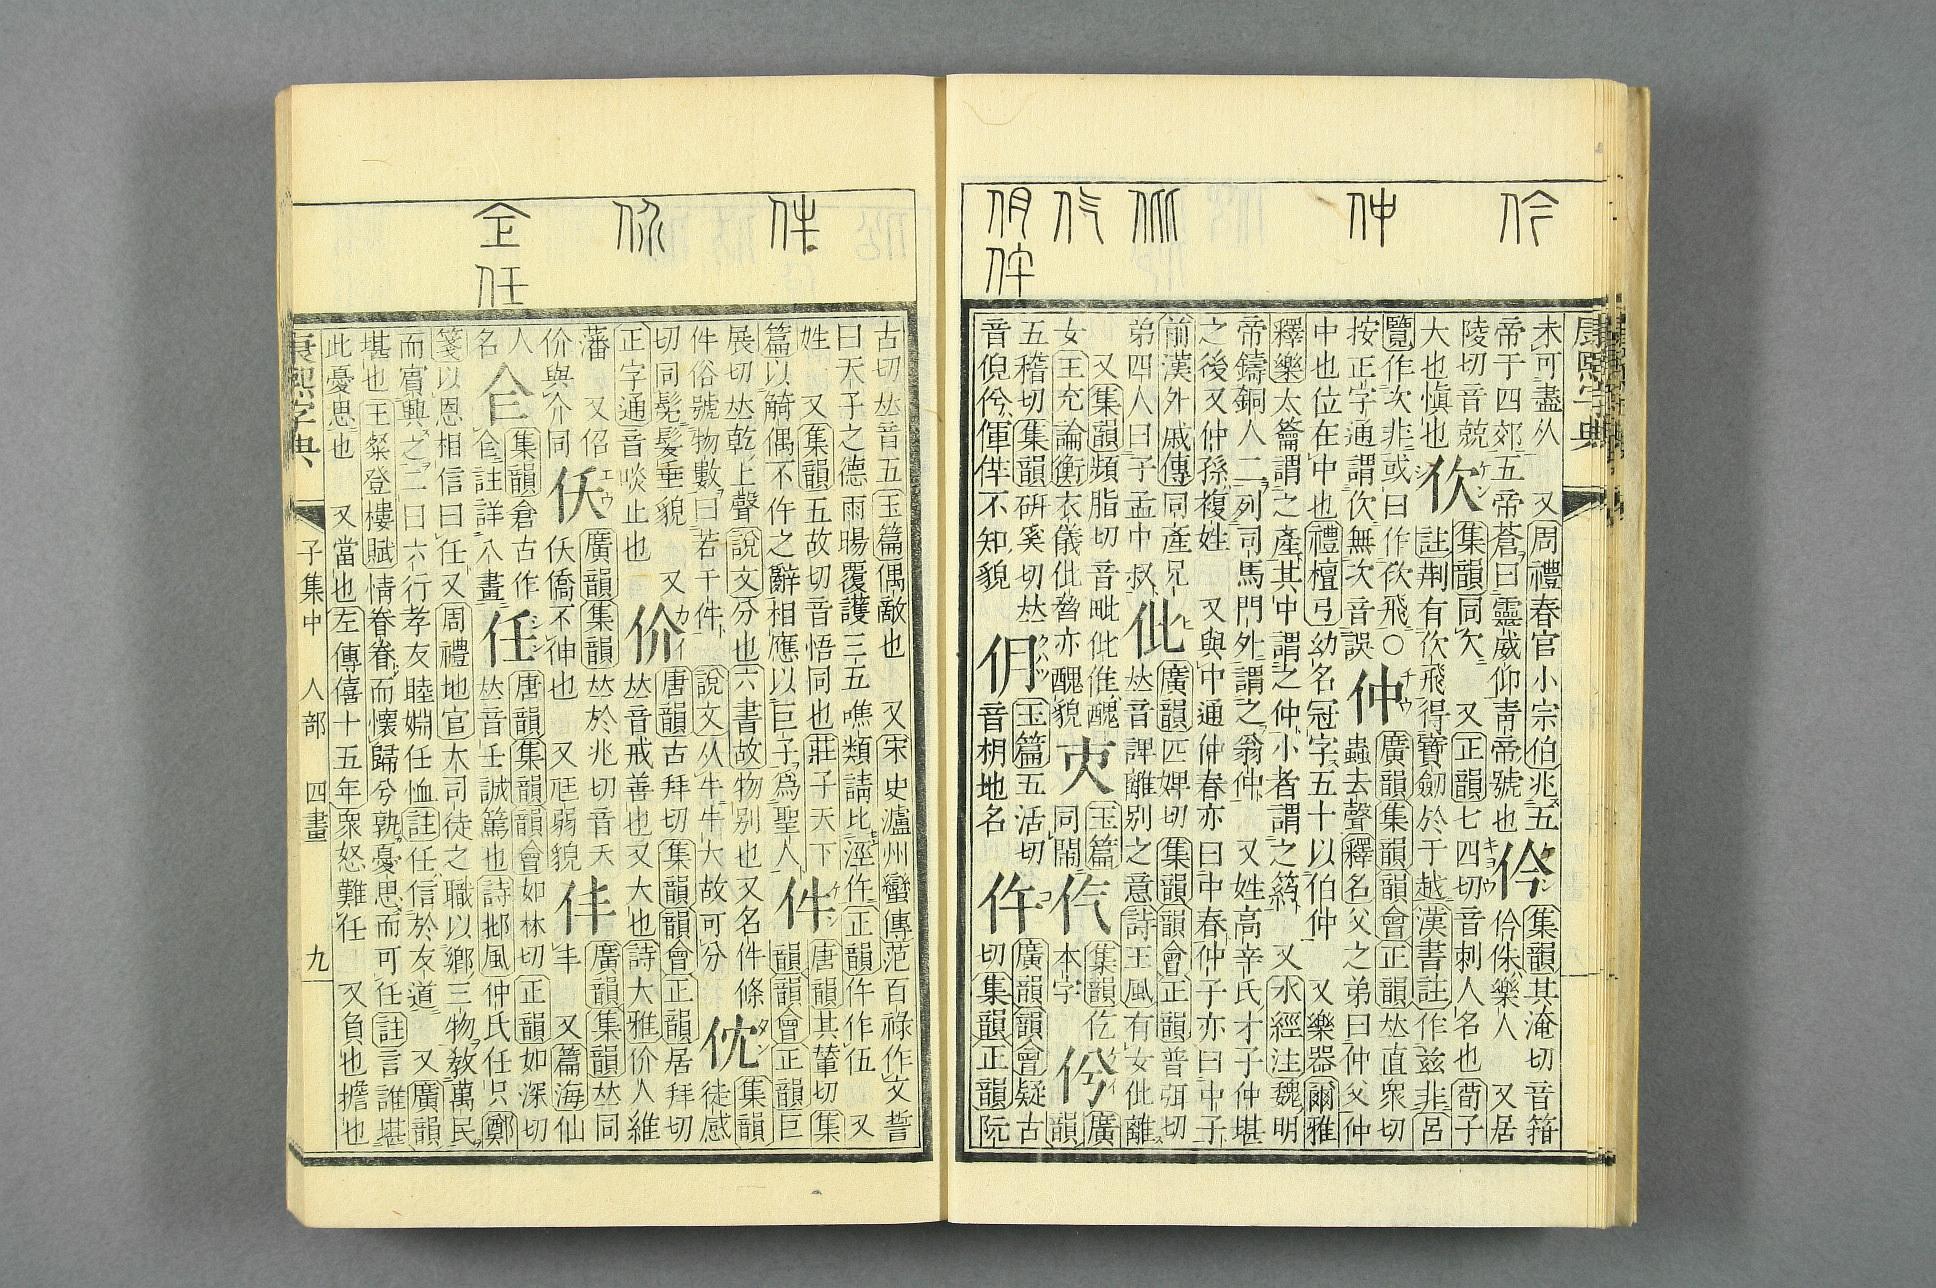 康熙字典
未可盡从 又周禮春官小宗伯兆五 伶 集韻其淹切音箝
帝于四郊五帝蒼曰靈威仰靑帝號也 伶侏樂人 又居
陵切音兢 佽 集韻同欠 又正韻七四切音刺人名也荀子
大也愼也 註荆有佽飛得寶劒於于越漢書註作兹非呂
覽作次非或曰作佽飛○ 仲 廣韻集韻韻會正韻𠀤直衆切
按正字通謂佽無次音誤 蟲去聲釋名父之弟曰仲父仲
中也位在中也禮檀弓幼名冠字五十以伯仲 又樂器爾雅
釋樂大籥謂之產其中謂之仲小者謂之箹 又水經注魏明
帝鑄銅人二列司馬門外謂之翁仲 又姓高辛氏才子仲堪
之後又仲孫複姓 又與中通仲春亦曰中春仲子亦曰中子
前漢外戚傳同產兄 仳 廣韻匹婢切集韻韻會正韻普弭切
弟四人曰子孟中叔 𠀤音諀離別之意詩王風有女仳離
又集韻頻脂切音毗仳倠醜 玉篇 集韻仡 廣
女王充論衡衣儀仳亦醜貌 同鬧 本字 韻
五稽切集韻硏奚切𠀤 仴 玉篇五活切 仵 廣韻韻會疑古
音倪 不知貌 音枂地名 切集韻正韻阮
古切𠀤音五玉篇偶敵也 又宋史瀘州蠻傳范百祿作文誓
曰天子之德雨暘覆護三五噍類請比涇仵正韻仵作伍 又
姓 又集韻五故切音悟同也莊子天下 件 唐韻其輦切集
篇以觭偶不仵之辭相應以巨子爲聖人 韻韻會正韻巨
展切𠀤乾上聲說文分也六書故物別也又名件條 㐤 集韻
件俗號物數曰若干件 說文从牛牛大故可分 徒感
切同髧髮垂貌 又 价 唐韻古拜切集韻韻會正韻居拜切
正字通音啖止也 𠀤音戒善也又大也詩大雅价人維
藩 又佋 仸 廣韻集韻𠀤於兆切音夭 仹 廣韻集韻𠀤同
价與介同 仸僑不伸也 又尫弱貌 丰 又篇海仙
人 仺 集韻倉古作 任 唐韻集韻韻會如林切正韻如深切
名 仺註詳八畫 𠀤音壬誠篤也詩邶風仲氏任只鄭
箋以恩相信曰任又周禮地官大司徒之職以鄕三物敎萬民
而賓興之二曰六行孝友睦婣任恤註任信於友道 又廣韻
堪也王粲登樓賦情眷眷而懷歸兮孰憂思而可任註言誰堪
此憂思也 又當也左傳僖十五年衆怒難任 又負也擔也
康熙字典 子集中 人部 四畫 九